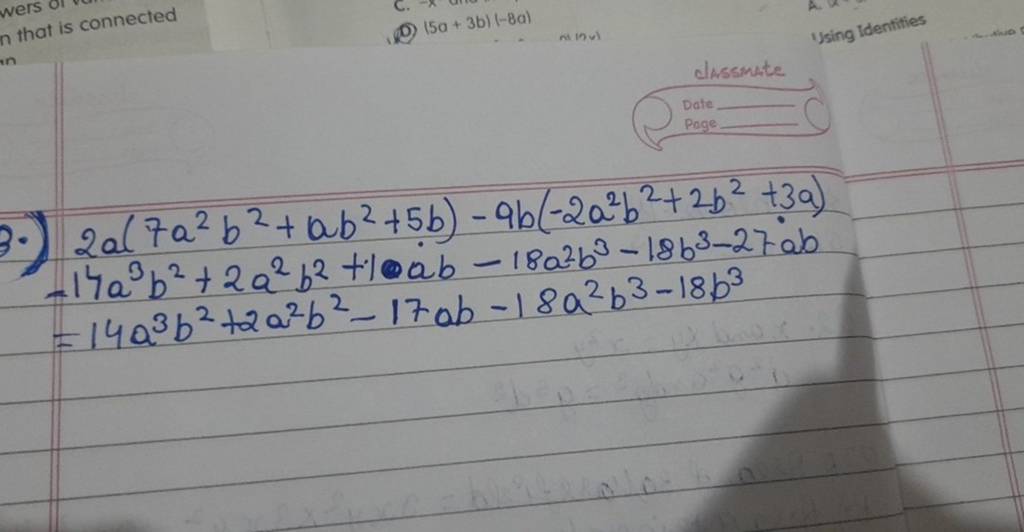 wers of
n that is connected
(5a + 3b) (-8a)
Using Identities
classmate
Date
Page
3.) 2a(7a²b² + ab² + 5b) - 9b(-2a²b² + 2b² + 3a)
= 14a³b² + 2a²b² + 10ab - 18a²b³ - 18b³ - 27ab
= 14a³b² + 2a²b² - 17ab - 18a²b³ - 18b³